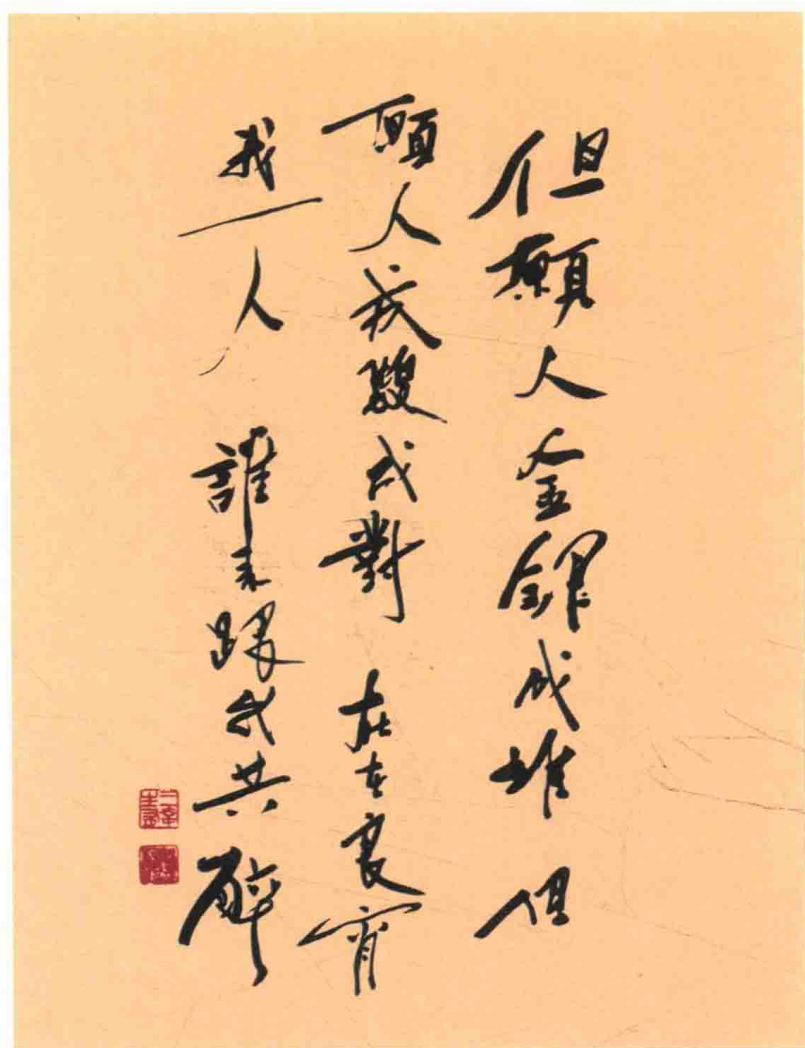 但願人金銀成堆 但
願人成雙成對 在良宵
我一人 誰來跟我共醉